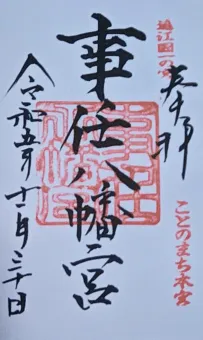 遠江国一の宮
奉拝
ことのまち本宮
事任八幡宮
令和五年十二月三十日